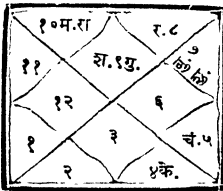 १०म.रा
र.८
११
श.९गु.
७
१२
६
१
३
चं.५
२
४के.